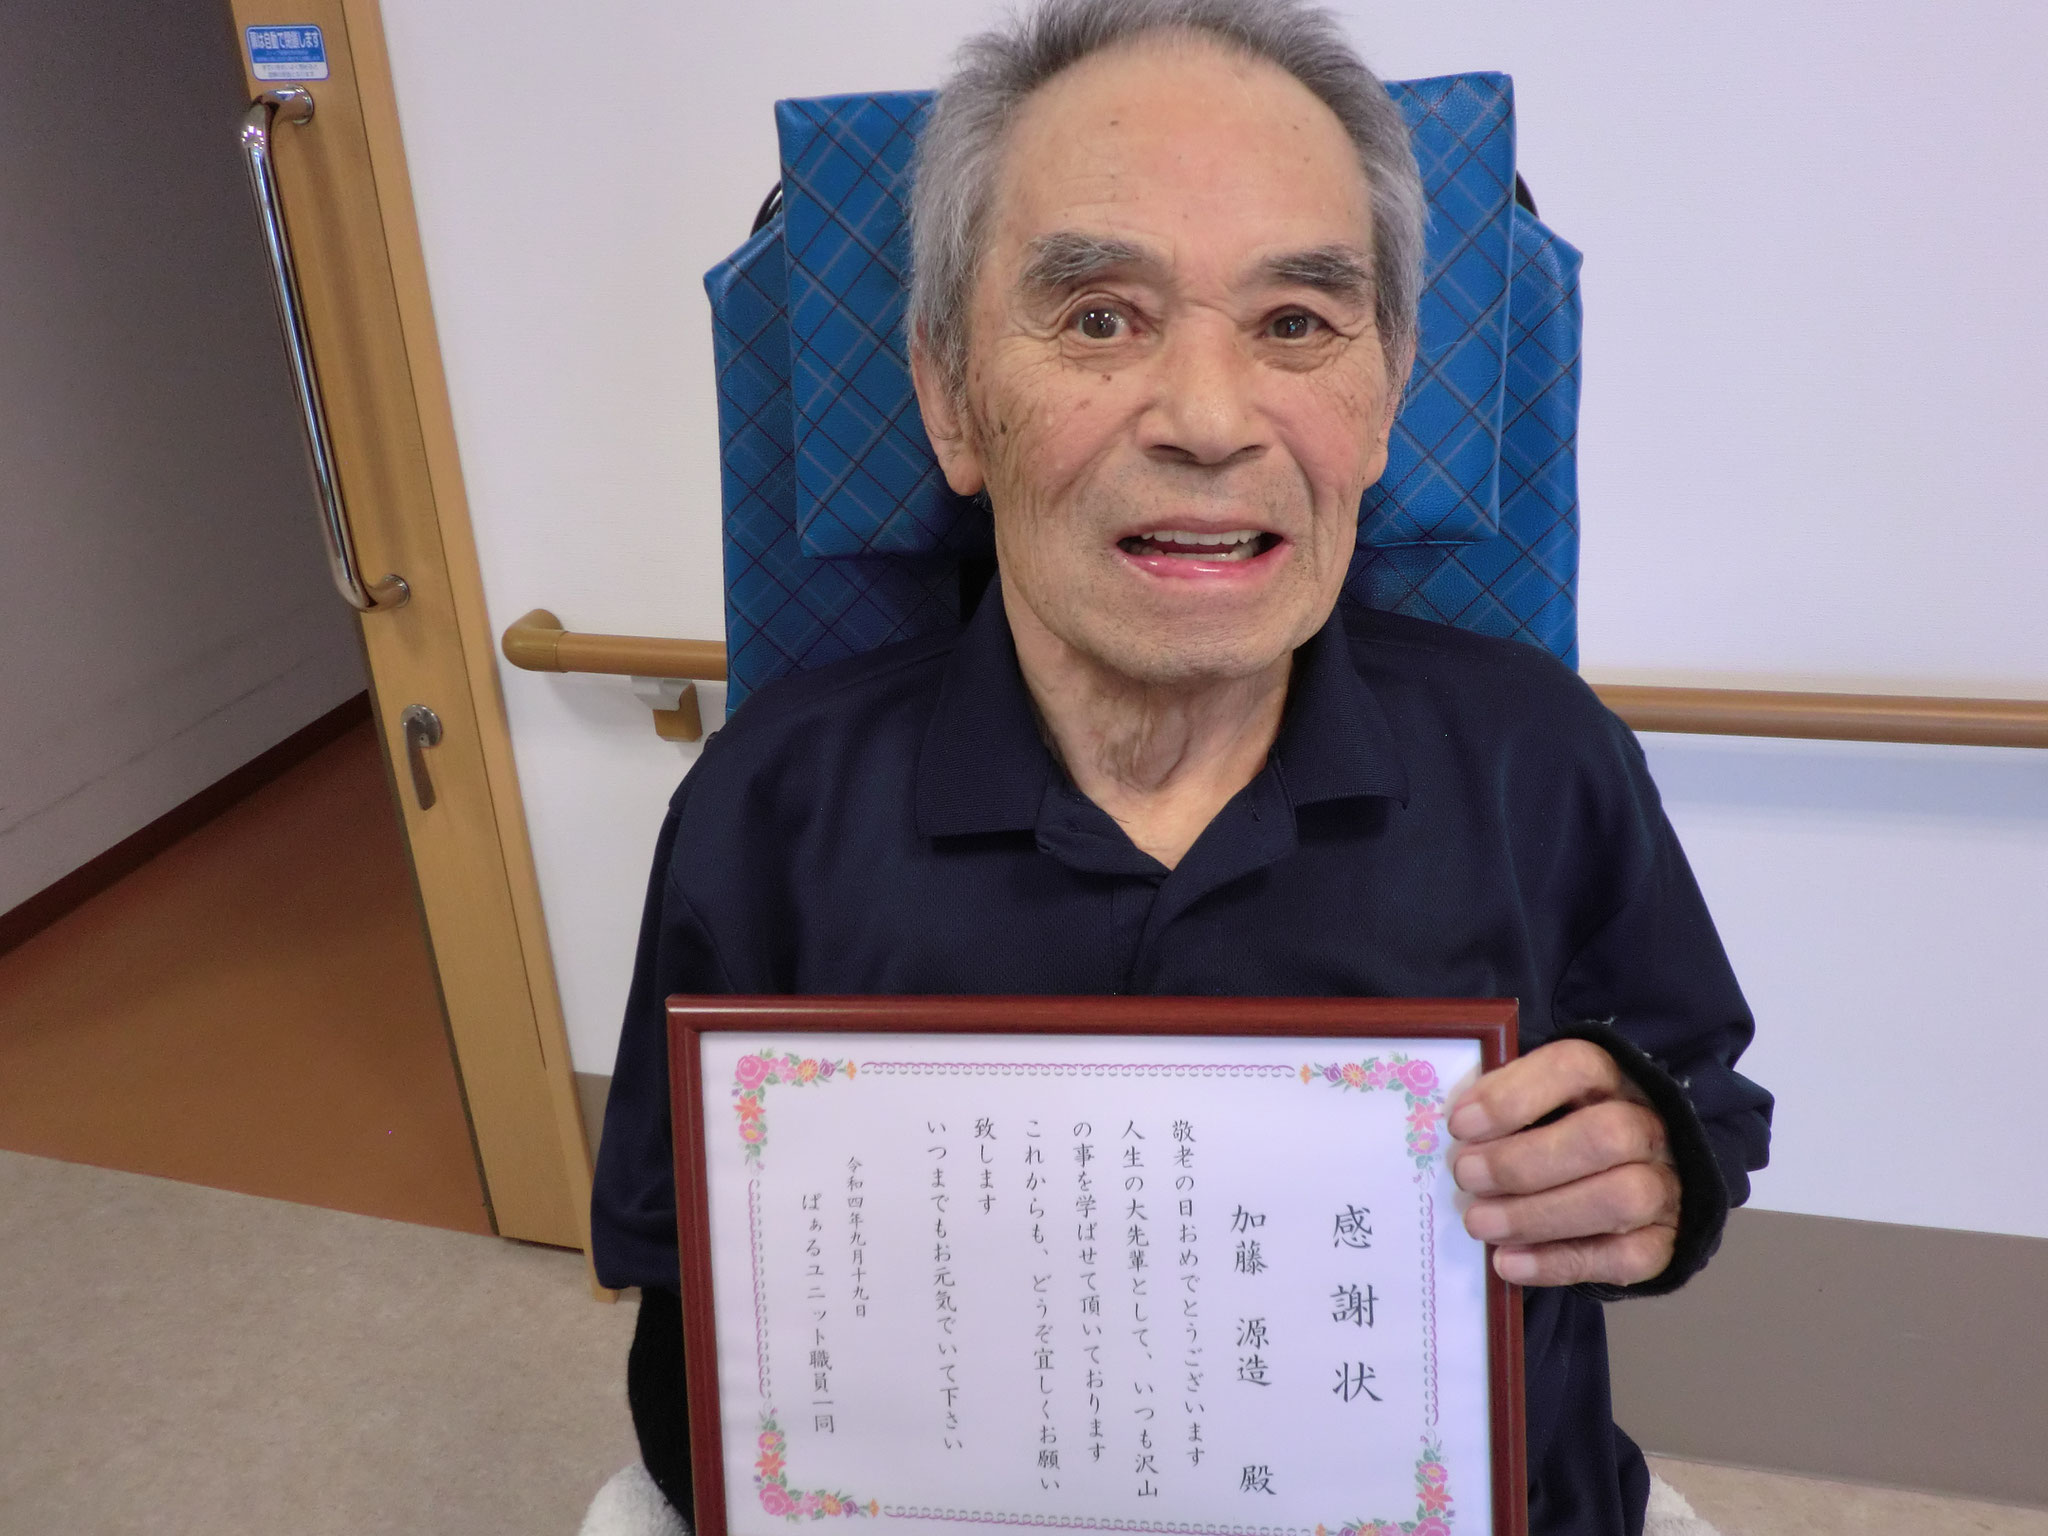 扉は自動で開閉します
感謝状
加藤 源造 殿
敬老の日おめでとうございます
人生の大先輩として、いつも沢山
の事を学ばせて頂いております
これからも、どうぞ宜しくお願い
致します
いつまでもお元気でいて下さい
令和四年九月十九日
ぱぁるユニット職員一同